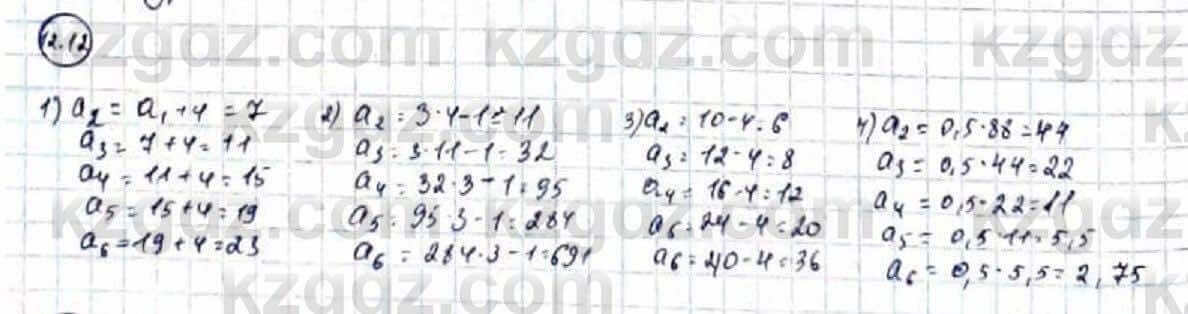 12.12
1) a₂ = a₁ + 4 = 7
a₃ = 7 + 4 = 11
a₄ = 11 + 4 = 15
a₅ = 15 + 4 = 19
a₆ = 19 + 4 = 23
2) a₂ = 3·4 - 1 = 11
a₃ = 3·11 - 1 = 32
a₄ = 32·3 - 1 = 95
a₅ = 95·3 - 1 = 284
a₆ = 284·3 - 1 = 691
3) a₂ = 10 - 4 = 6
a₃ = 12 - 4 = 8
a₄ = 16 - 4 = 12
a₅ = 24 - 4 = 20
a₆ = 40 - 4 = 36
4) a₂ = 0,5·88 = 44
a₃ = 0,5·44 = 22
a₄ = 0,5·22 = 11
a₅ = 0,5·11 = 5,5
a₆ = 0,5·5,5 = 2,75
kzgdz.com kzgdz.com kzgdz.com
kzgdz.com kzgdz.com
kzgdz.com kzgdz.com